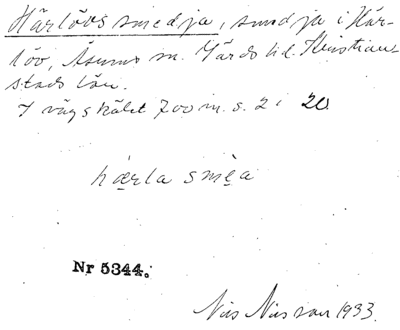 Härlövs smedja, smedja i Här-
löv, Åsums sn. Gärds hd. Kristian-
stads län.
I vägskälet 700 m. s. 2 i 20
hærla smea
Nr 5344.
Nils Nilsson 1933.